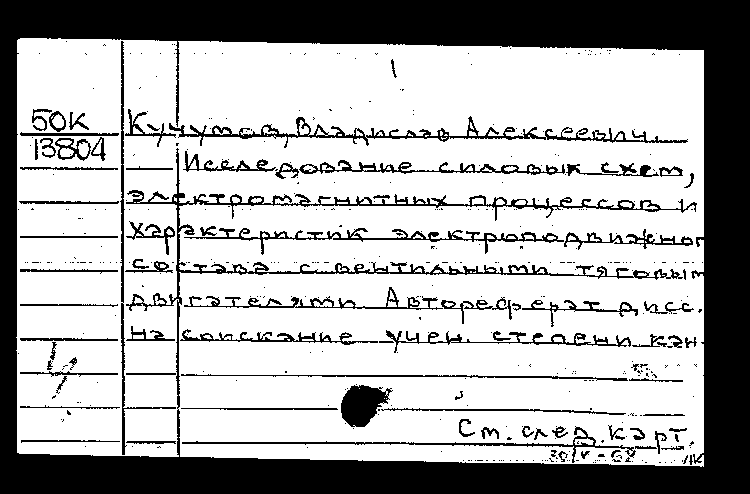 1
50К Кучумов, Владислав Алексеевич.
13804 Исследование силовых схем,
электромагнитных процессов и
характеристик электроподвижног
состава с вентильными тяговым
двигателями Автореферат дисс.
на соискание учен. степени кан
См. след. карт.
30/V-68